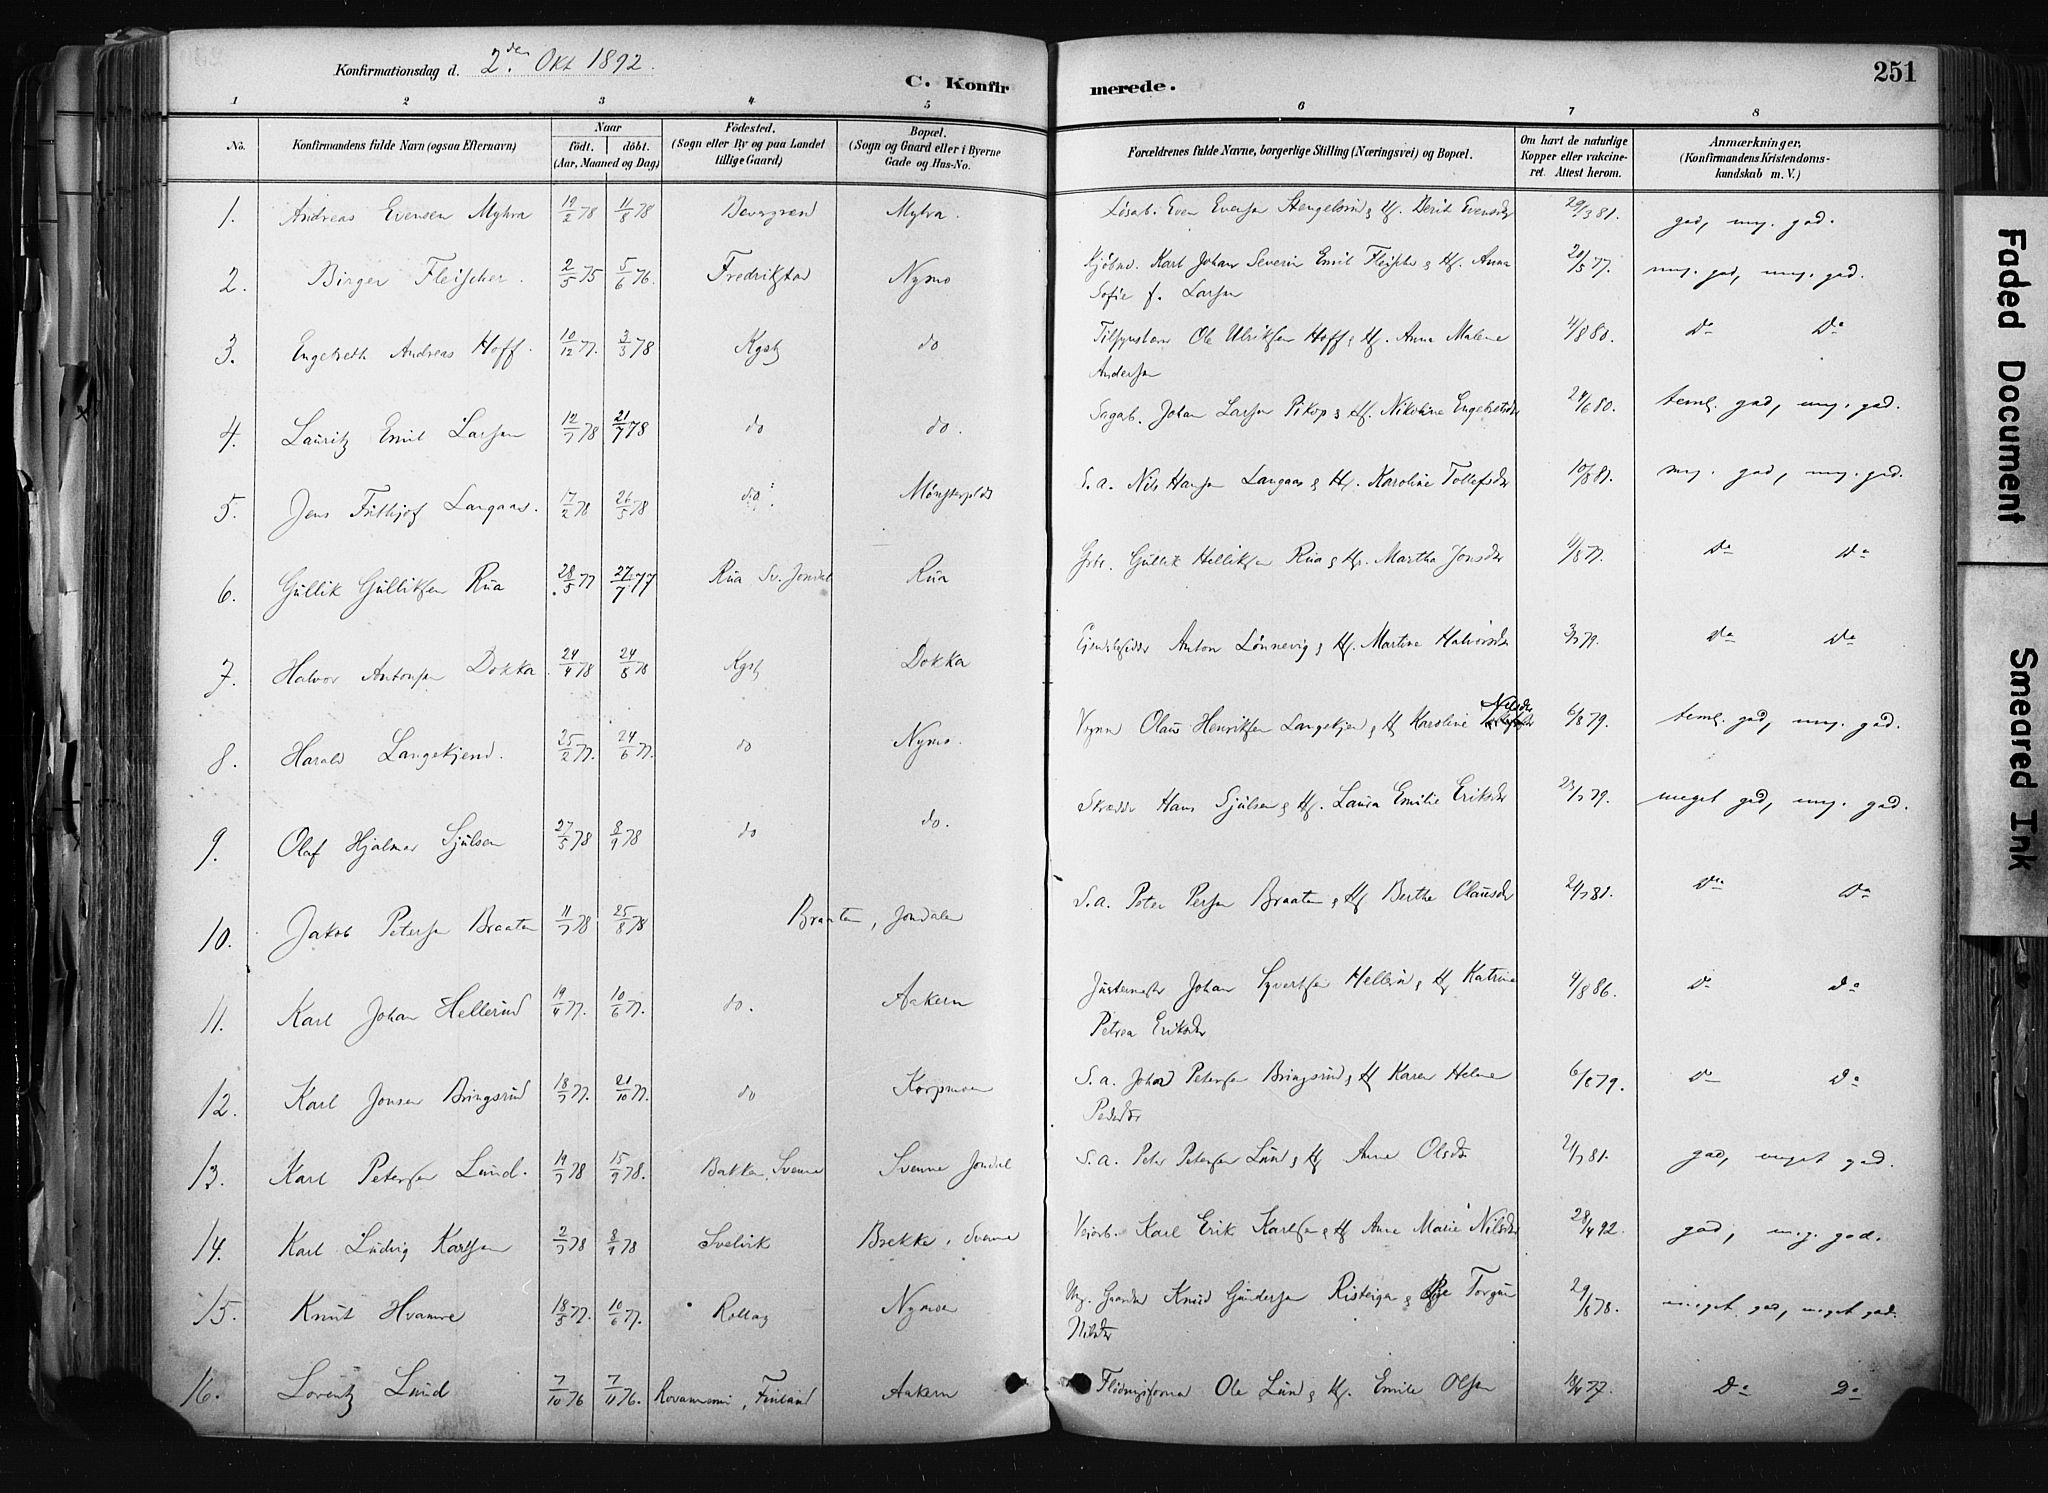 Konfirmationsdag d. 2den Okt 1892.
C. Konfirmerede.
251
1 2 3 4 5 6 7 8
No.
Konfirmandens fulde Navn (ogsaa Efternavn)
Naar
födt. döbt.
(Aar, Maaned og Dag)
Födested.
(Sogn eller By og paa Landet
tillige Gaard)
Bopæl.
(Sogn og Gaard eller i Byerne
Gade og Hus-No.
Forældrenes fulde Navne, borgerlige Stilling (Næringsvei) og Bopæl.
Om havt de naturlige
Kopper eller vakcine-
ret. Attest herom.
Anmærkninger,
(Konfirmandens Kristendoms-
kundskab m. V.)
1. Andreas Evensen Myhra 19/2 78 11/8 78 Myhra. Even Evensen & Hf. Berit Evensdr 29/3 81. god, meg. god.
2. Birger Fleischer. 2/5 75 5/6 76. Fredrikstad Nymo Kjöbmd. Karl Johan Severin Emil Fleischer & Hf. Anna 20/5 77. meg. god, meg. god.
Sofie f. Larsen
3. Engebreth Andreas Hoff. 10/12 77. 3/3 78 Kgsbg do Ole Ulriksen Hoff & Hf. Anna Malene 4/8 80. Do Do
Andersen
4. Lauritz Emil Larsen 12/7 78 21/7 78 do do. Sagarb. Johan Larsen & Hf. Nikoline Engebretsdr 24/6 80. teml. god, meg. god.
5. Jens Frithjof Langaas. 17/2 78 26/5 78 do. S. a. Nils Hansen Langaas & Hf. Karoline Tollefsdr 10/8 81. meg. god, meg. god.
6. Gullik Gulliksen Rua 28/5 77 27/7 77 Rua Sv. Jondal Rua Gbr. Gullik Helliksen Rua & Hf. Martha Jonsdr 4/8 77. Do Do
7. Halvor Antonsen Dokka. 24/4 78 24/8 78 Kgsbg Dokka Anton Lönnevig & Hf. Martine Halvorsdr 3/7 79. Do Do
8. Harald Langekjend. 25/2 77. 24/6 77. do Nymo. Olaus Henriksen Langekjen & Hf Karoline Nilsdr 6/8 79. teml. god, meg. god.
9. Olaf Hjalmar Sjulsen 27/5 78 8/9 78 do do. Skrædder Hans Sjulsen & Hf. Laura Emilie Eriksdr 23/7 79. meget god, meg. god.
10. Jakob Petersen Braaten 11/7 78 25/8 78 Braaten, Jondalen S. a. Peter Persen Braaten & Hf Berthe Clausdr 21/7 81. Do Do
11. Karl Johan Hellerud 19/4 77. 10/6 77. do. Aakern Justermester Johan Syvertsen & Hf Katrine 4/8 86. Do Do
Petrea Eriksdr
12. Karl Jonsen Bringsrud 18/7 77. 21/10 77. do Korpmoen S. a. Petersen Bringsrud & Hf Karen Helene 6/8 79. Do Do
Pedersdr
13. Karl Petersen Lund. 19/7 78 15/9 78. Bakken, Svenne Svenne Jondal S. a. Peter Petersen Lund & Hf Anne Olsdr 21/7 81. god, meget god.
14. Karl Ludvig Karlsen 2/7 78 8/9 78 Svelvik Brekke, Svenne Veiarb. Karl Erik Karlsen & Hf Anne Marie Nilsdr 28/4 92. god, m.g. god.
15. Knut Hvamve 18/5 77. 10/6 77. Rollag Nymoen Knud Gundersen Risteigen & Torgun 29/8 78. meget god, meget god.
Nilsdr
16. Lorentz Lund 7/10 76 7/11 76. Rovaniemi, Finland Aakern Ole Lund & Hf. Emile Olsen 18/4 77. Do Do
Faded Document
Smeared Ink